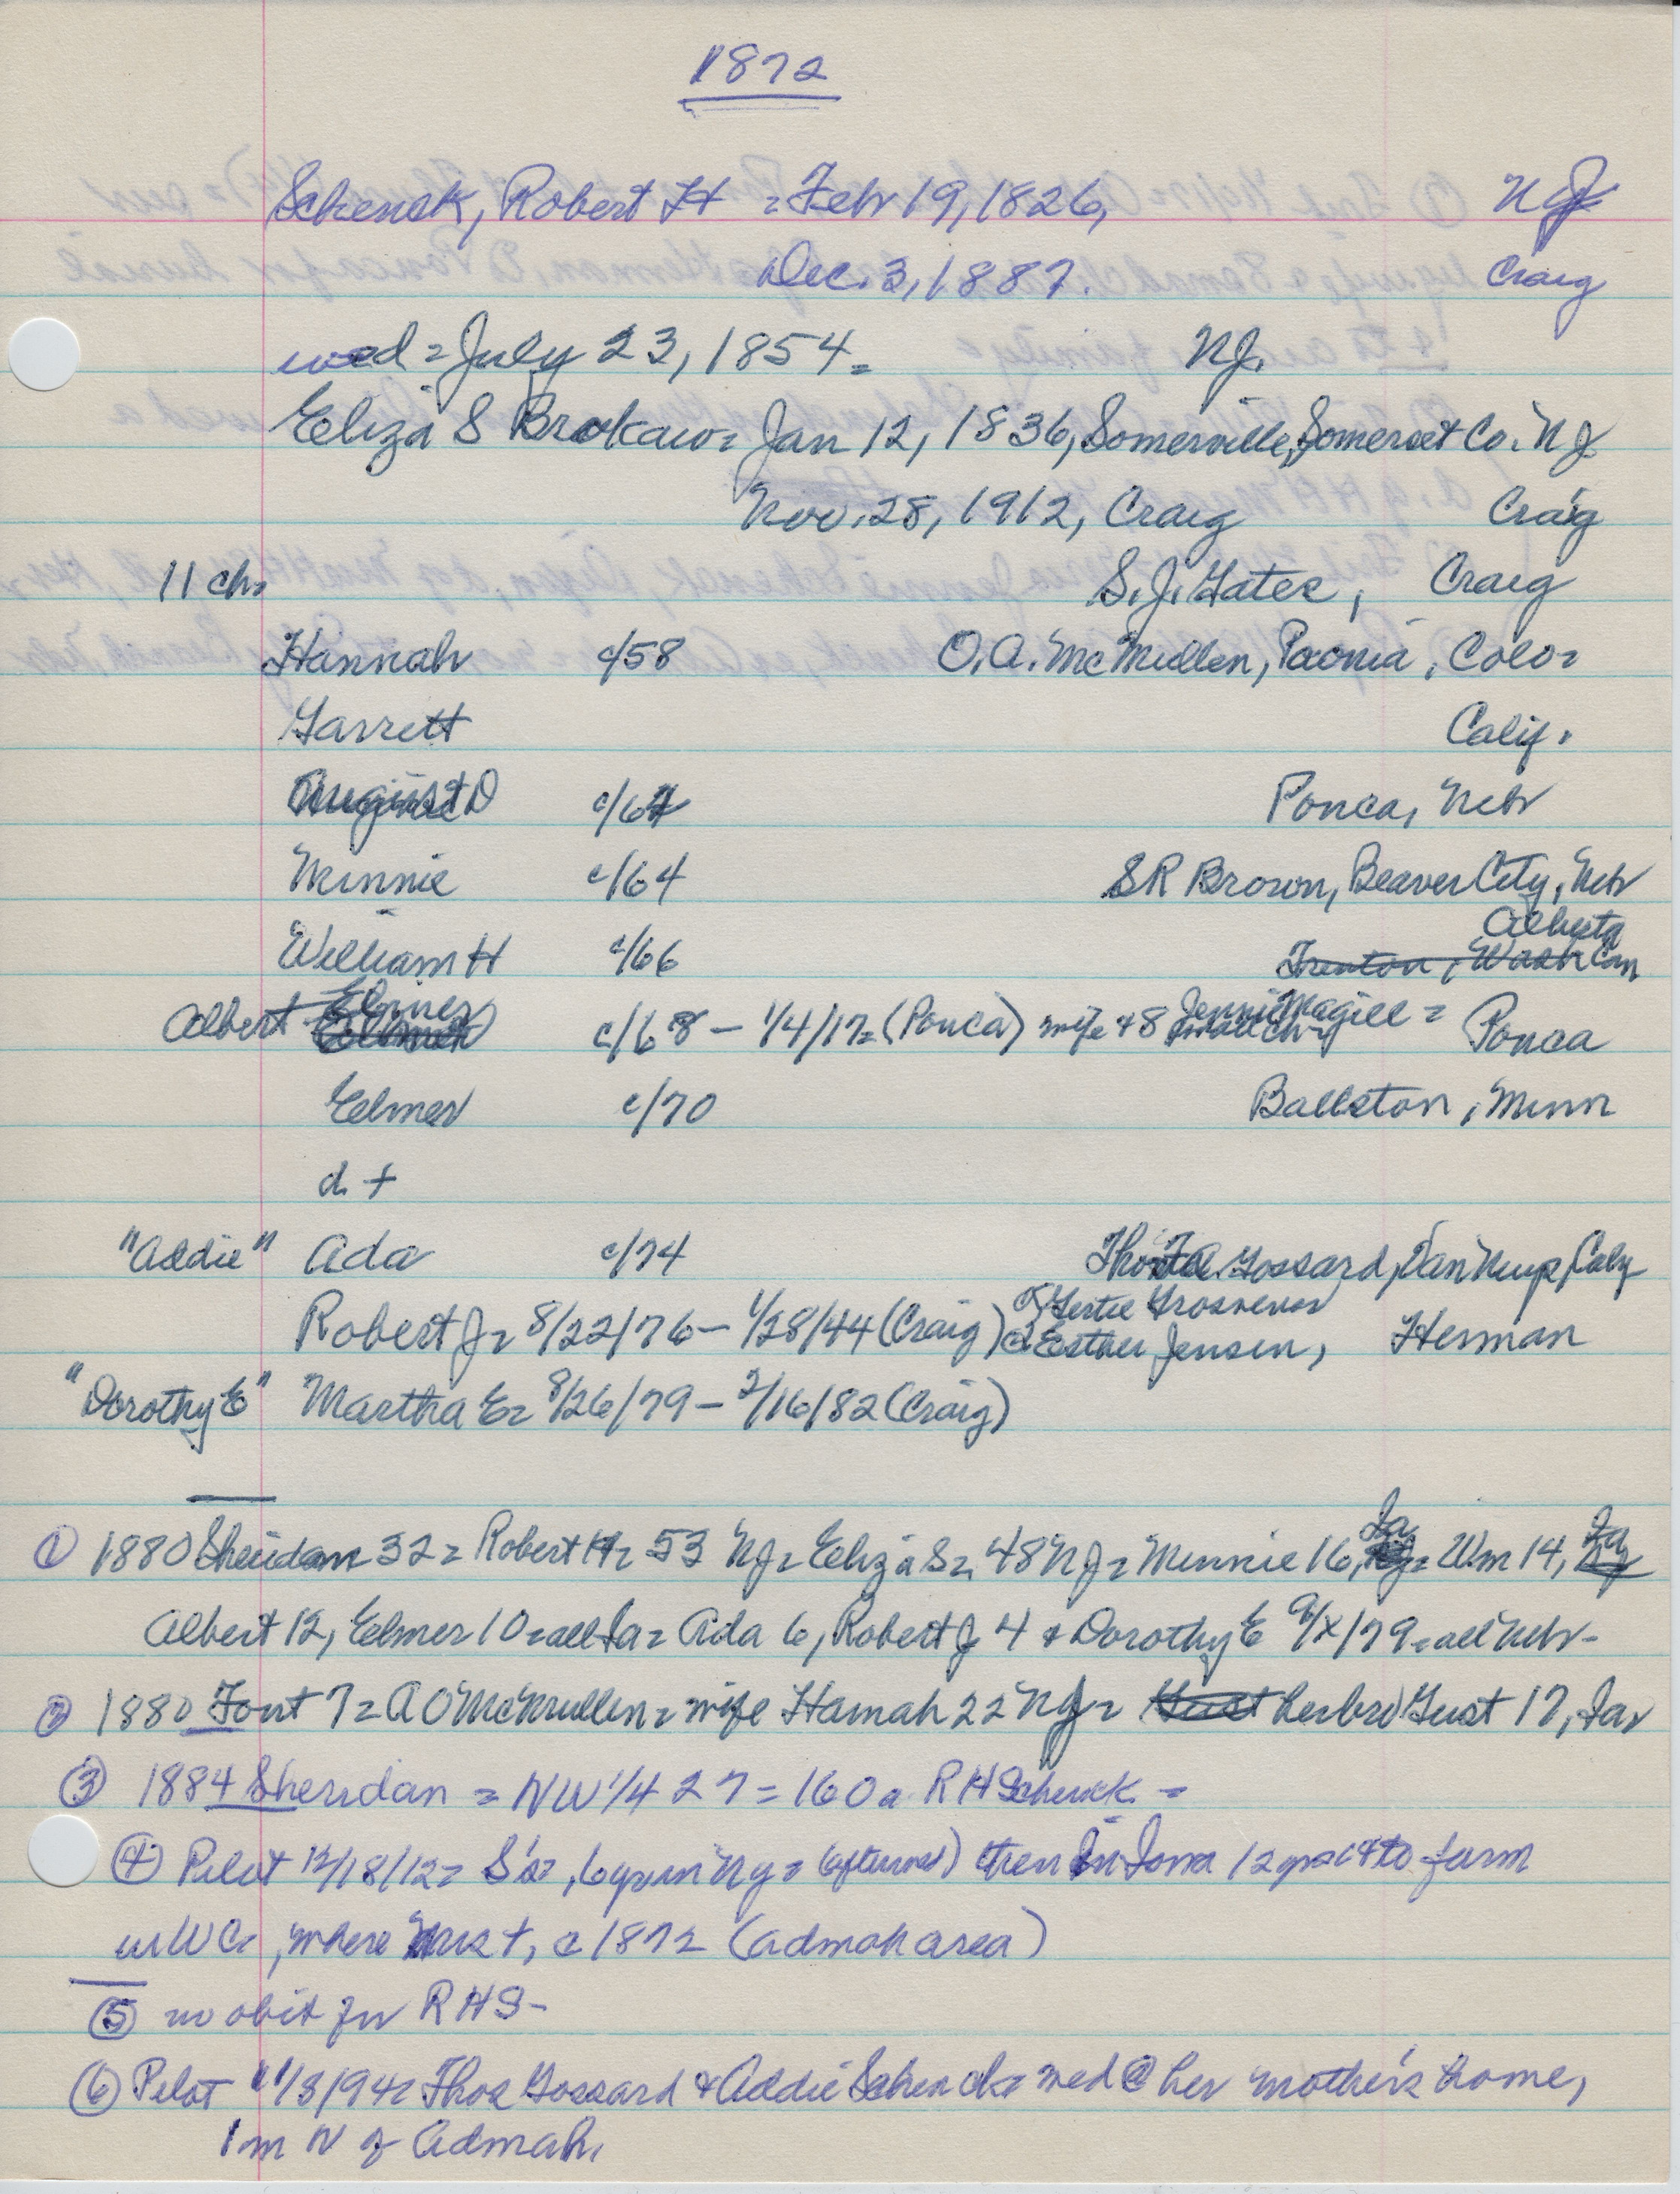 1872
Schenck, Robert H = Feb 19, 1826, NJ
Dec. 3, 1887. Craig
wed = July 23, 1854 = NJ.
Eliza S Brokaw = Jan 12, 1836, Somerville, Somerset Co. NJ
Nov. 28, 1912, Craig Craig
11 ch = S. J. Gates, Craig
Hannah c/58 O. A. McMullen, Paonia, Colo =
Garrett Calif.
August D c/62 Ponca, Nebr
Minnie c/64 SR Brown, Beaver City, Nebr
Alberta
William H c/66 Trenton, Wash Can
Albert Elmer c/68 – 1/4/17 = (Ponca) wife + 8 small ch = Jennie Magill = Ponca
Elmer c/70 Ballston, Minn
d. +
"Addie" Ada c/74 Thos Gossard, Van Nuys, Calif
① Gertie Grosvenor
Robert J = 8/22/76 – 1/28/44 (Craig) ② Esther Jensen, Herman
"Dorothy E" Martha E = 8/26/79 – 2/16/82 (Craig)
① 1880 Sheridan 32 = Robert H = 53 NJ = Eliza S = 48 NJ = Minnie 16, Ia = Wm 14, Ia
Albert 12, Elmer 10 = all Ia = Ada 6, Robert J 4 & Dorothy E 9/x/79 = all Nebr –
② 1880 Font 7 = A O McMullen = wife Hannah 22 NJ = her bro Gust 17, Ia,
③ 1884 Sheridan = NW 1/4 27 = 160 a RH Schenck =
④ Pilot 12/18/12 = S's = , 6 yrs in NJ = (after wed) then in Iowa 12 yrs = & to farm
in WC, where Mrs +, c 1872 (Admah area)
⑤ no obit for RHS –
⑥ Pilot 1/3/94 = Thos Gossard & Addie Schenck = wed @ her mother's home,
1 m N of Admah,